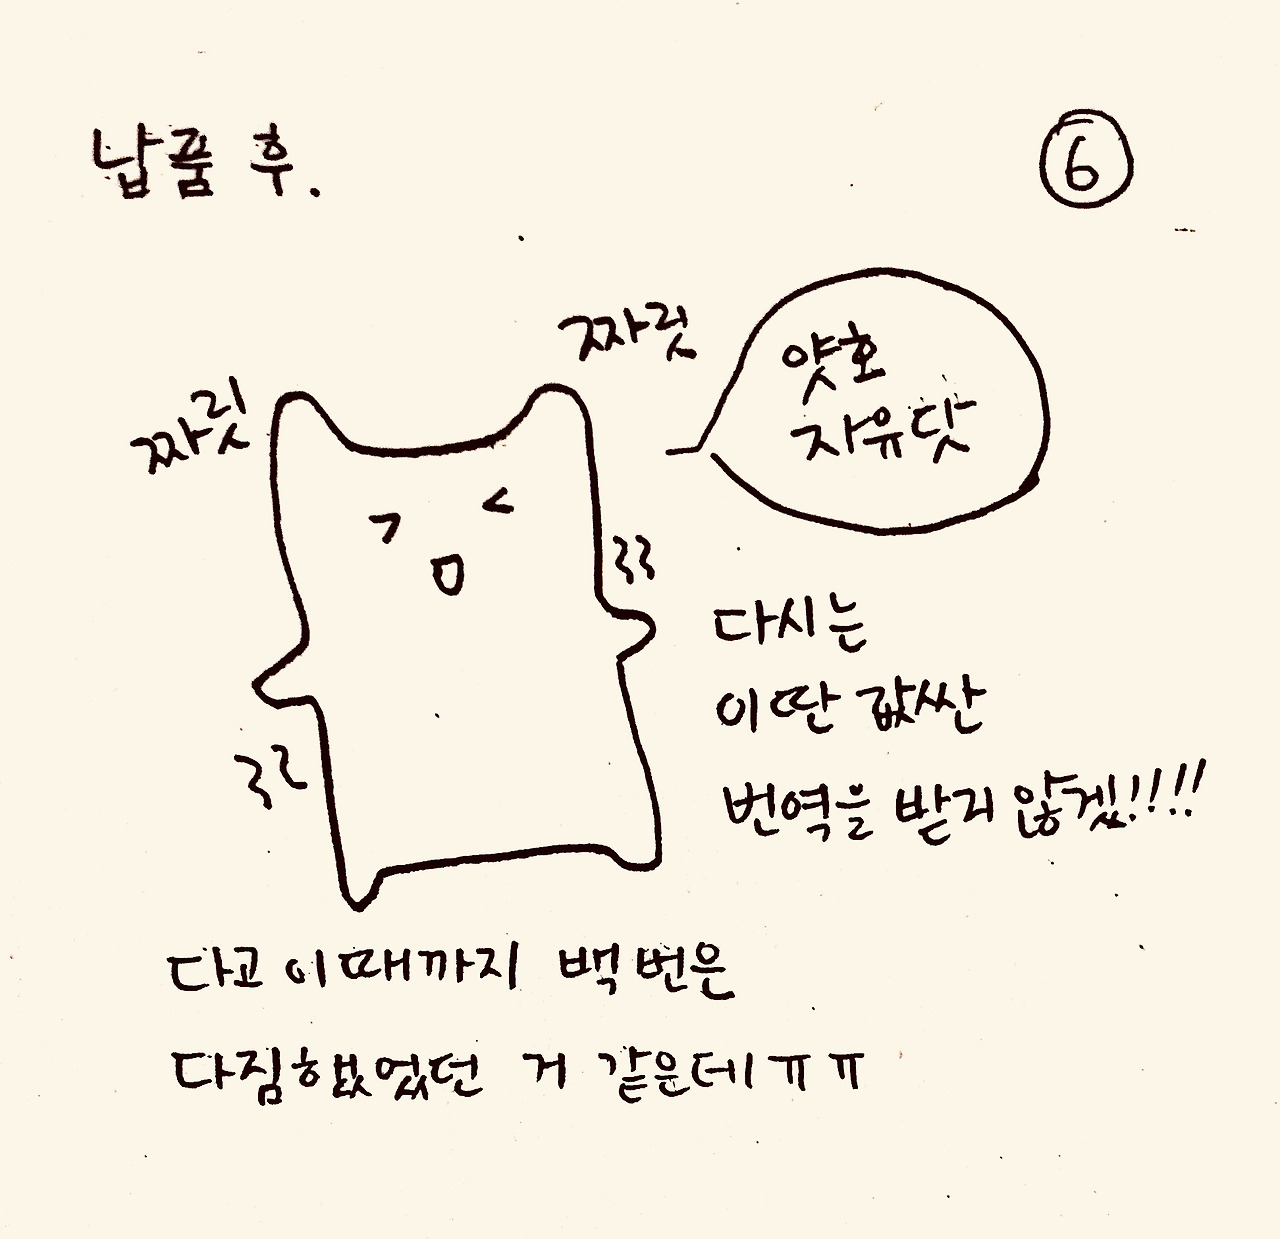 납품 후.
6
짜릿
짜릿
얏호
자유닷
다시는
이딴 값싼
번역을 받지 않겠!!!!
다고 이때까지 백번은
다짐했었던 거 같은데 ㅠㅠ